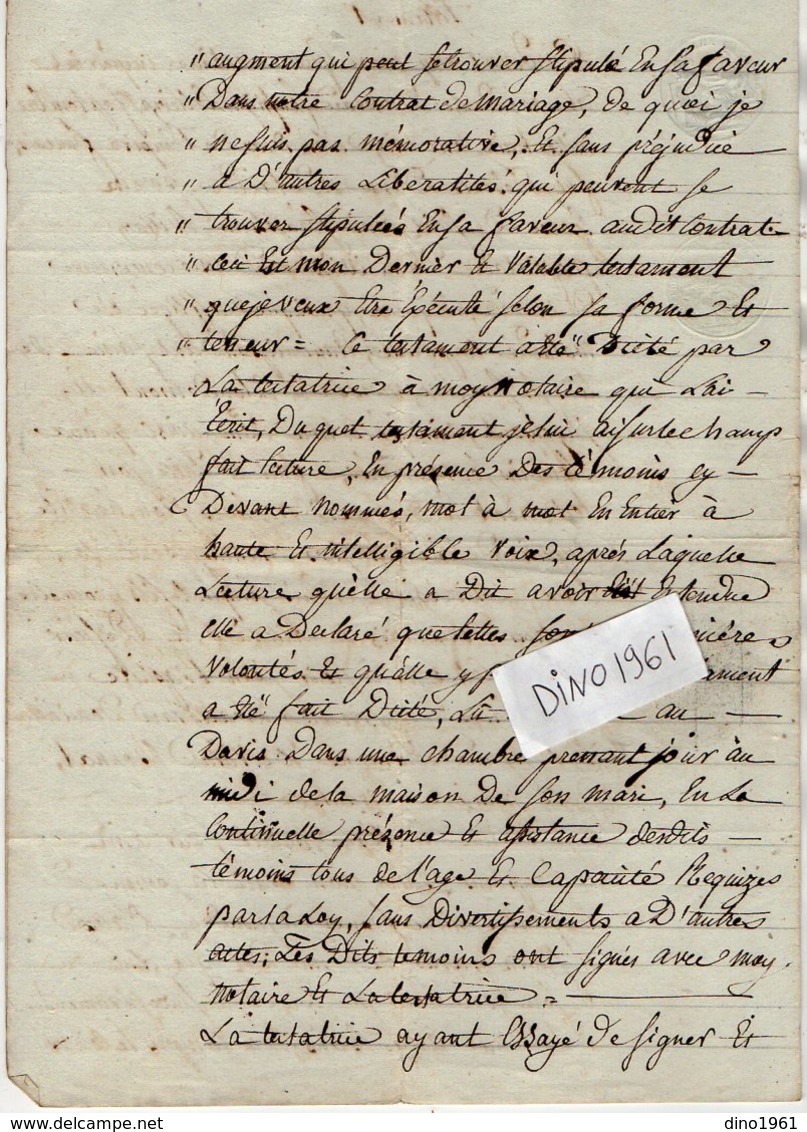 " augment qui peut se trouver stipulé En sa faveur
" Dans notre Contrat de mariage, de quoi je
" ne suis pas mémorative, Et sans préjudice
" à D'autres Liberalités qui peuvent se
" trouver stipulées En sa faveur audit Contrat.
" Ceci Est mon Dernier Et Valable testament
" que je veux Etre Exécuté selon sa forme Et
" teneur = Ce testament a été Dicté par
La testatrice à moy Notaire qui L'ai
Ecrit, Duquel testament je lui ai sur le champ
fait lecture, En présence Des témoins cy
Devant nommés, mot à mot En Entier à
haute Et intelligible voix, après Laquelle
Lecture qu'elle a Dit avoir Entendue
elle a Declaré que telles
Volontés Et qu'elle y
a été fait Dicté, Lû au
Davis Dans une chambre prenant jour au
midi de la maison De son mari, En La
Continuelle présence Et assistance desdits
témoins tous de l'age Et Capacité Requizes
par la Loy, sans Divertissements a D'autres
actes; Les Dits temoins ont signés avec moy
notaire Et La testatrice =
La testatrice ayant Essayé de signer Et
DINO1961
dino1961